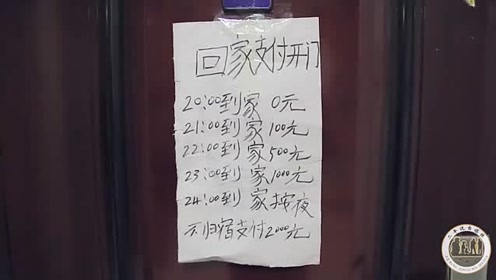 回家支付开门
20:00到家 0元
21:00到家 100元
22:00到家 500元
23:00到家 1000元
24:00到家按夜
不归宿支付2000元